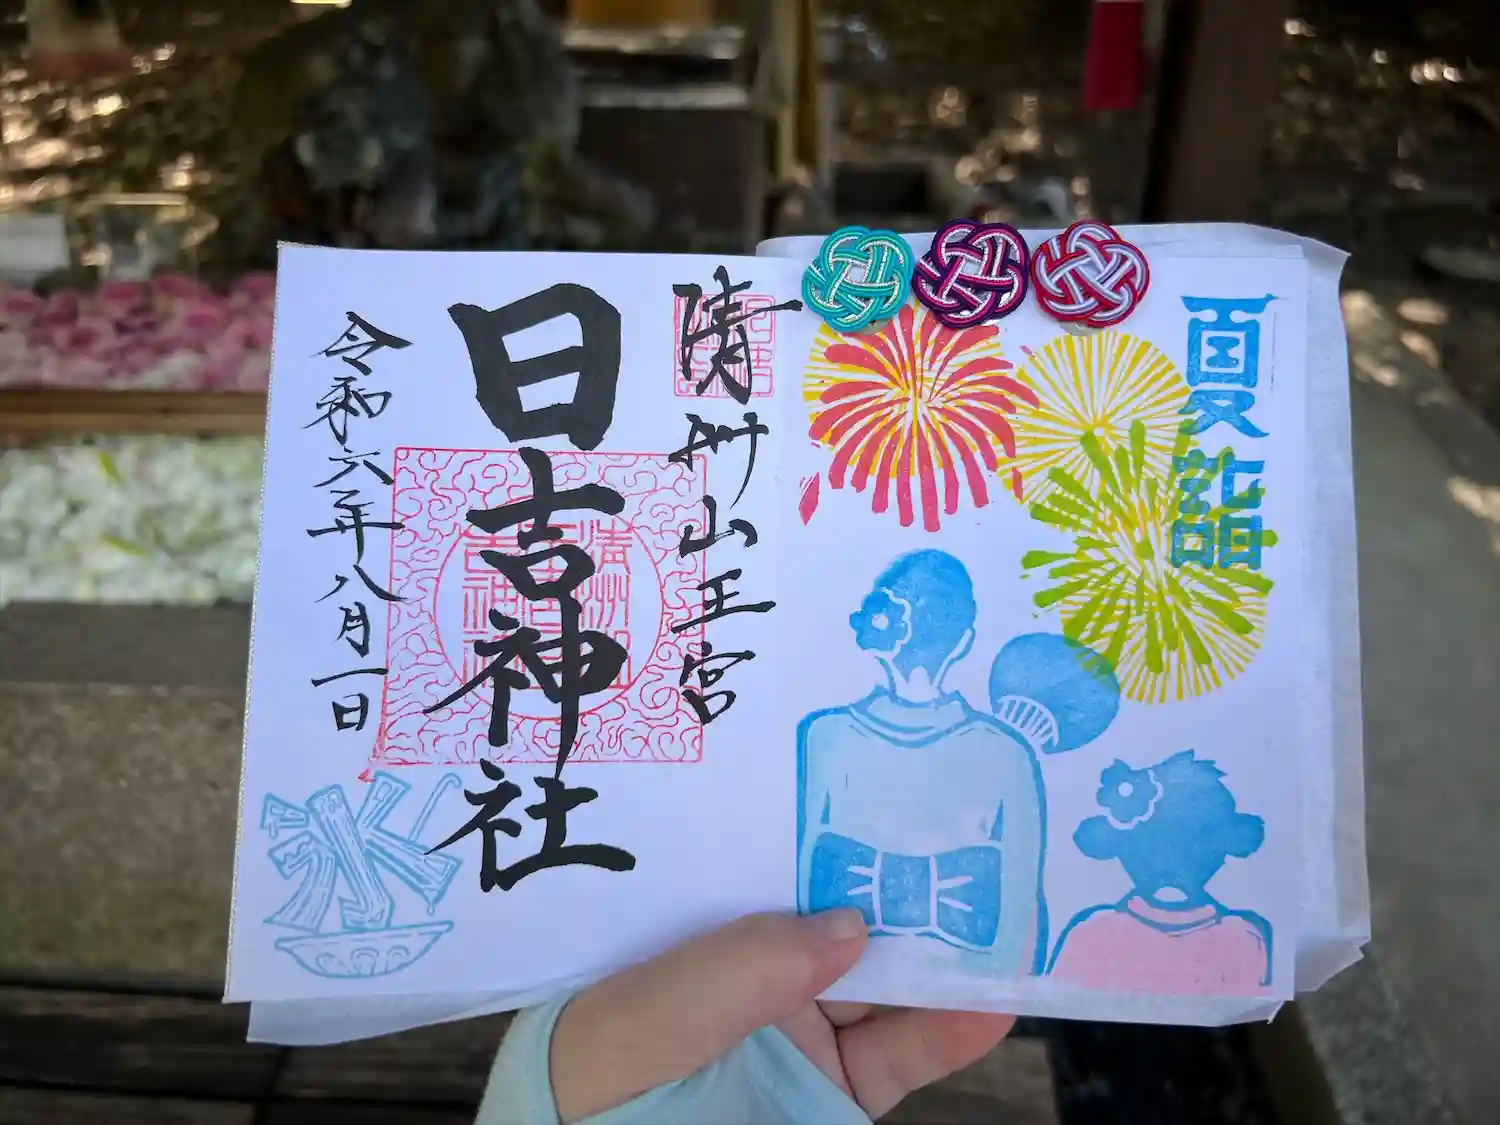 夏詣
清州山王宮
日吉神社
令和六年八月一日
氷